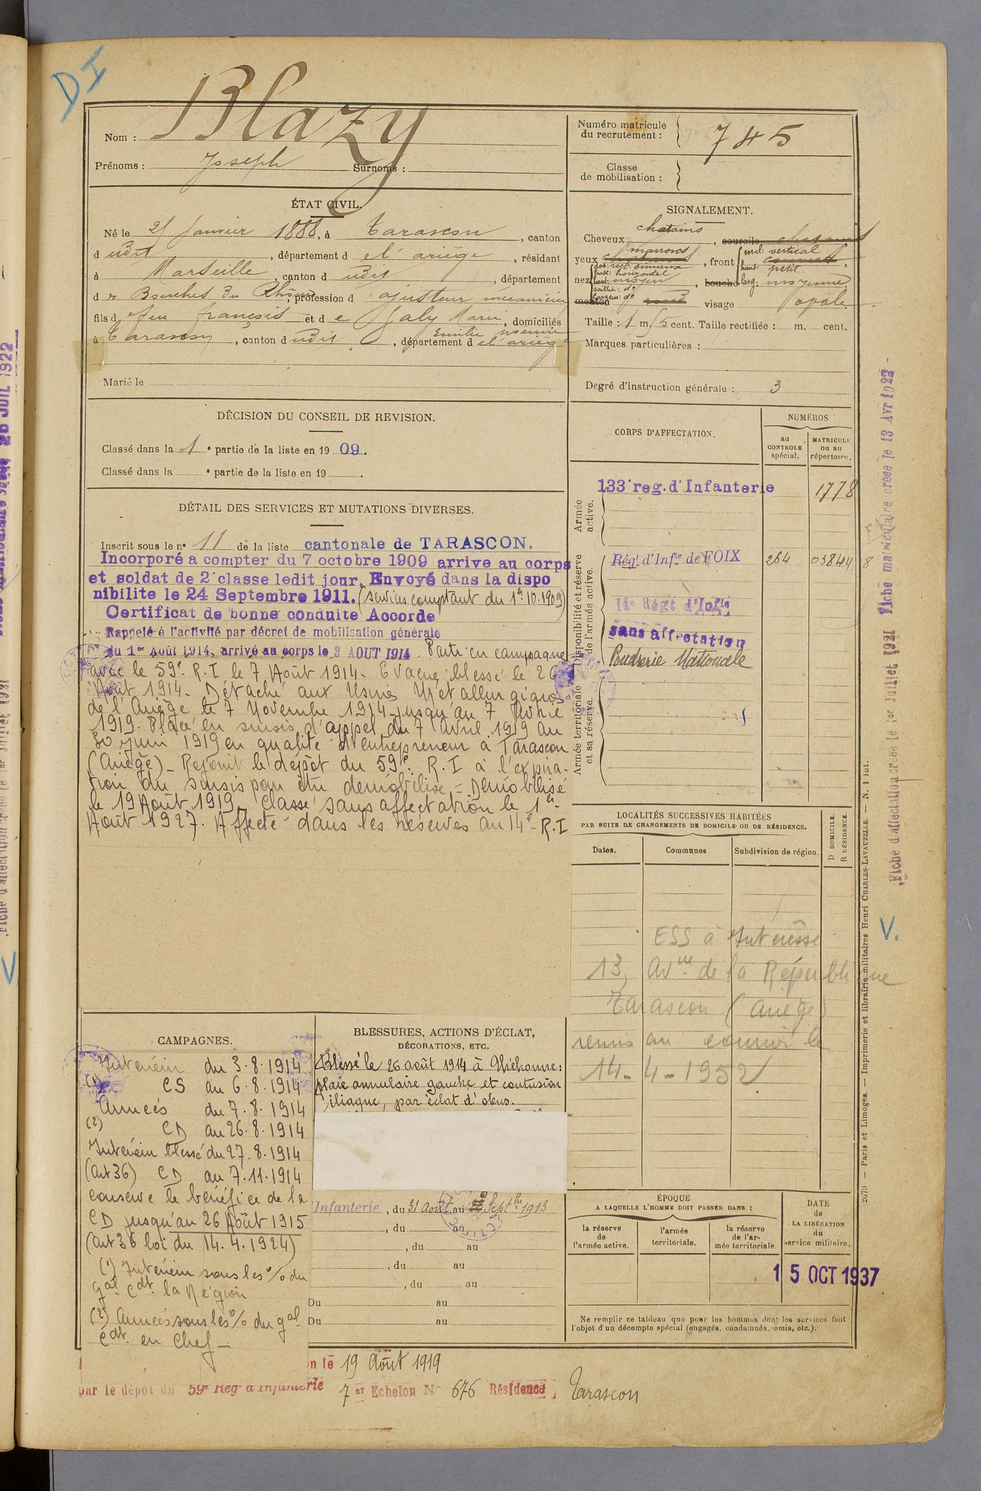 DI
Nom : Blazy
Prénoms : Joseph Surnoms :
Numéro matricule du recrutement : 745
Classe de mobilisation :
ÉTAT CIVIL.
Né le 21 Janvier 1888, à Tarascon, canton
dudit, département de l'ariège, résidant
à Marseille, canton dudit, département
des Bouches du Rhône, profession d'ajusteur mécanicien
fils de feu françois et de Galy Marie, domiciliés
Emilie
à Tarascon, canton dudit, département de l'ariège
Marié le
SIGNALEMENT.
chatains
Cheveux
yeux marrons, front incl: vertical haut: petit larg: moyenne
nez dos: rect. sinueux base: horizontal haut: moyen
menton visage Ovale
Taille : 1 m. cent. Taille rectifiée : m. cent.
Marques particulières :
Degré d'instruction générale : 3
DÉCISION DU CONSEIL DE REVISION.
Classé dans la 1e partie de la liste en 1909.
Classé dans la e partie de la liste en 19 .
CORPS D'AFFECTATION.
NUMÉROS
au CONTROLE spécial.
MATRICULE ou au répertoire.
Armée active.
133e reg. d'Infanterie 1778
Disponibilité et réserve de l'armée active.
Régt d'Infie de FOIX 264
Régt d'Infie
sans affectation
Poudrerie Nationale
Armée territoriale et sa réserve.
DÉTAIL DES SERVICES ET MUTATIONS DIVERSES.
Inscrit sous le n° 11 de la liste cantonale de TARASCON.
Incorporé a compter du 7 octobre 1909 arrive au corps
et soldat de 2e classe ledit jour. Envoyé dans la dispo
nibilite le 24 Septembre 1911. (services comptant du 1er 10.1909)
Certificat de bonne conduite Accorde
Rappelé à l'activité par décret de mobilisation générale
du 1er Août 1914, arrivé au corps le 3 AOUT 1914 Parti en campagne
avec le 59e R.I le 7 Août 1914. Evacué blessé le 26
Août 1914. Détaché aux Usines Métallurgiques
de l'Ariège le 7 Novembre 1914 jusqu'au 7 Avril
1919. Placé en sursis d'appel du 7 avril 1919 au
30 juin 1919 en qualité d'entrepreneur à Tarascon
(Ariège). Rejoint le dépôt du 59e R.I à l'expira-
tion du sursis pour être démobilisé. Démobilisé
le 19 Août 1919. Classé sans affectation le 1er
Août 1927. Affecté dans les réserves au 14e R.I
LOCALITÉS SUCCESSIVES HABITÉES
PAR SUITE DE CHANGEMENTS DE DOMICILE OU DE RÉSIDENCE.
Dates. Communes Subdivision de région. D DOMICILE. R RÉSIDENCE.
ESS à Intéressé
13, Avnue de la République
Tarascon (Ariège)
remis au courrier le
14-4-1952
CAMPAGNES.
Intérieur du 3.8.1914
(1) CS au 6.8.1914
Armées du 7.8.1914
(2) CD au 26.8.1914
Intérieur blessé du 27.8.1914
(Art 36) CD au 7.11.1914
conserve le bénéfice de la
CD jusqu'au 26 Août 1915
(Art 36 loi du 14.4.1924)
(1) Intérieur sous les % du
gal Cdt la Région
(2) Armées sous les % du gal
Cdt en Chef
BLESSURES, ACTIONS D'ÉCLAT,
DÉCORATIONS, ETC.
Blessé le 26 août 1914 à Thiaumont :
plaie annulaire gauche et contusion
iliaque, par éclat d'obus.
Infanterie, du 31 Août au Septbre 1913
, du au
, du au
, du au
, du au
Du au
Du au
ÉPOQUE
A LAQUELLE L'HOMME DOIT PASSER DANS :
la réserve de l'armée active.
l'armée territoriale.
la réserve de l'armée territoriale.
DATE de LA LIBÉRATION du service militaire.
15 OCT 1937
Ne remplir ce tableau que pour les hommes dont les services font
l'objet d'un décompte spécial (engagés, condamnés, omis, etc.).
on le 19 Août 1919
par le dépôt du 59e Reg d'Infanterie 7e Echelon N° 676 Résidence, Tarascon
2079 — Paris et Limoges. — Imprimerie et librairie militaires Henri CHARLES-LAVAUZELLE. — N. 1 bis.
Fiche d'affectation créée le 1er Juillet 1921
Fiche matriculaire créée le 13 Avr 1922
V.
26 JUIL 1922
V